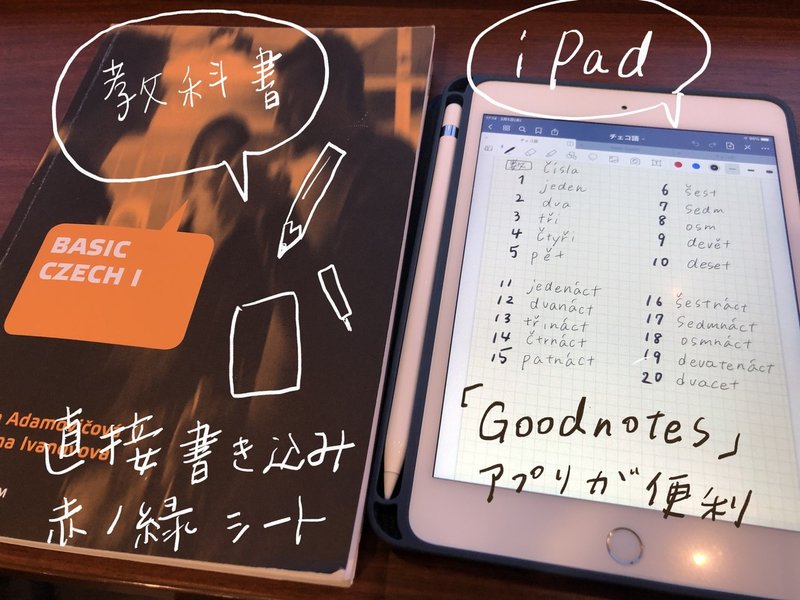 教科書
BASIC
CZECH I
直接書き込み
赤/緑シート
iPad
チェコ語
čísla
1 jeden
2 dva
3 tři
4 čtyři
5 pět
6 šest
7 sedm
8 osm
9 devět
10 deset
11 jedenáct
12 dvanáct
13 třináct
14 čtrnáct
15 patnáct
16 šestnáct
17 sedmnáct
18 osmnáct
19 devatenáct
20 dvacet
「Goodnotes」
アプリが便利